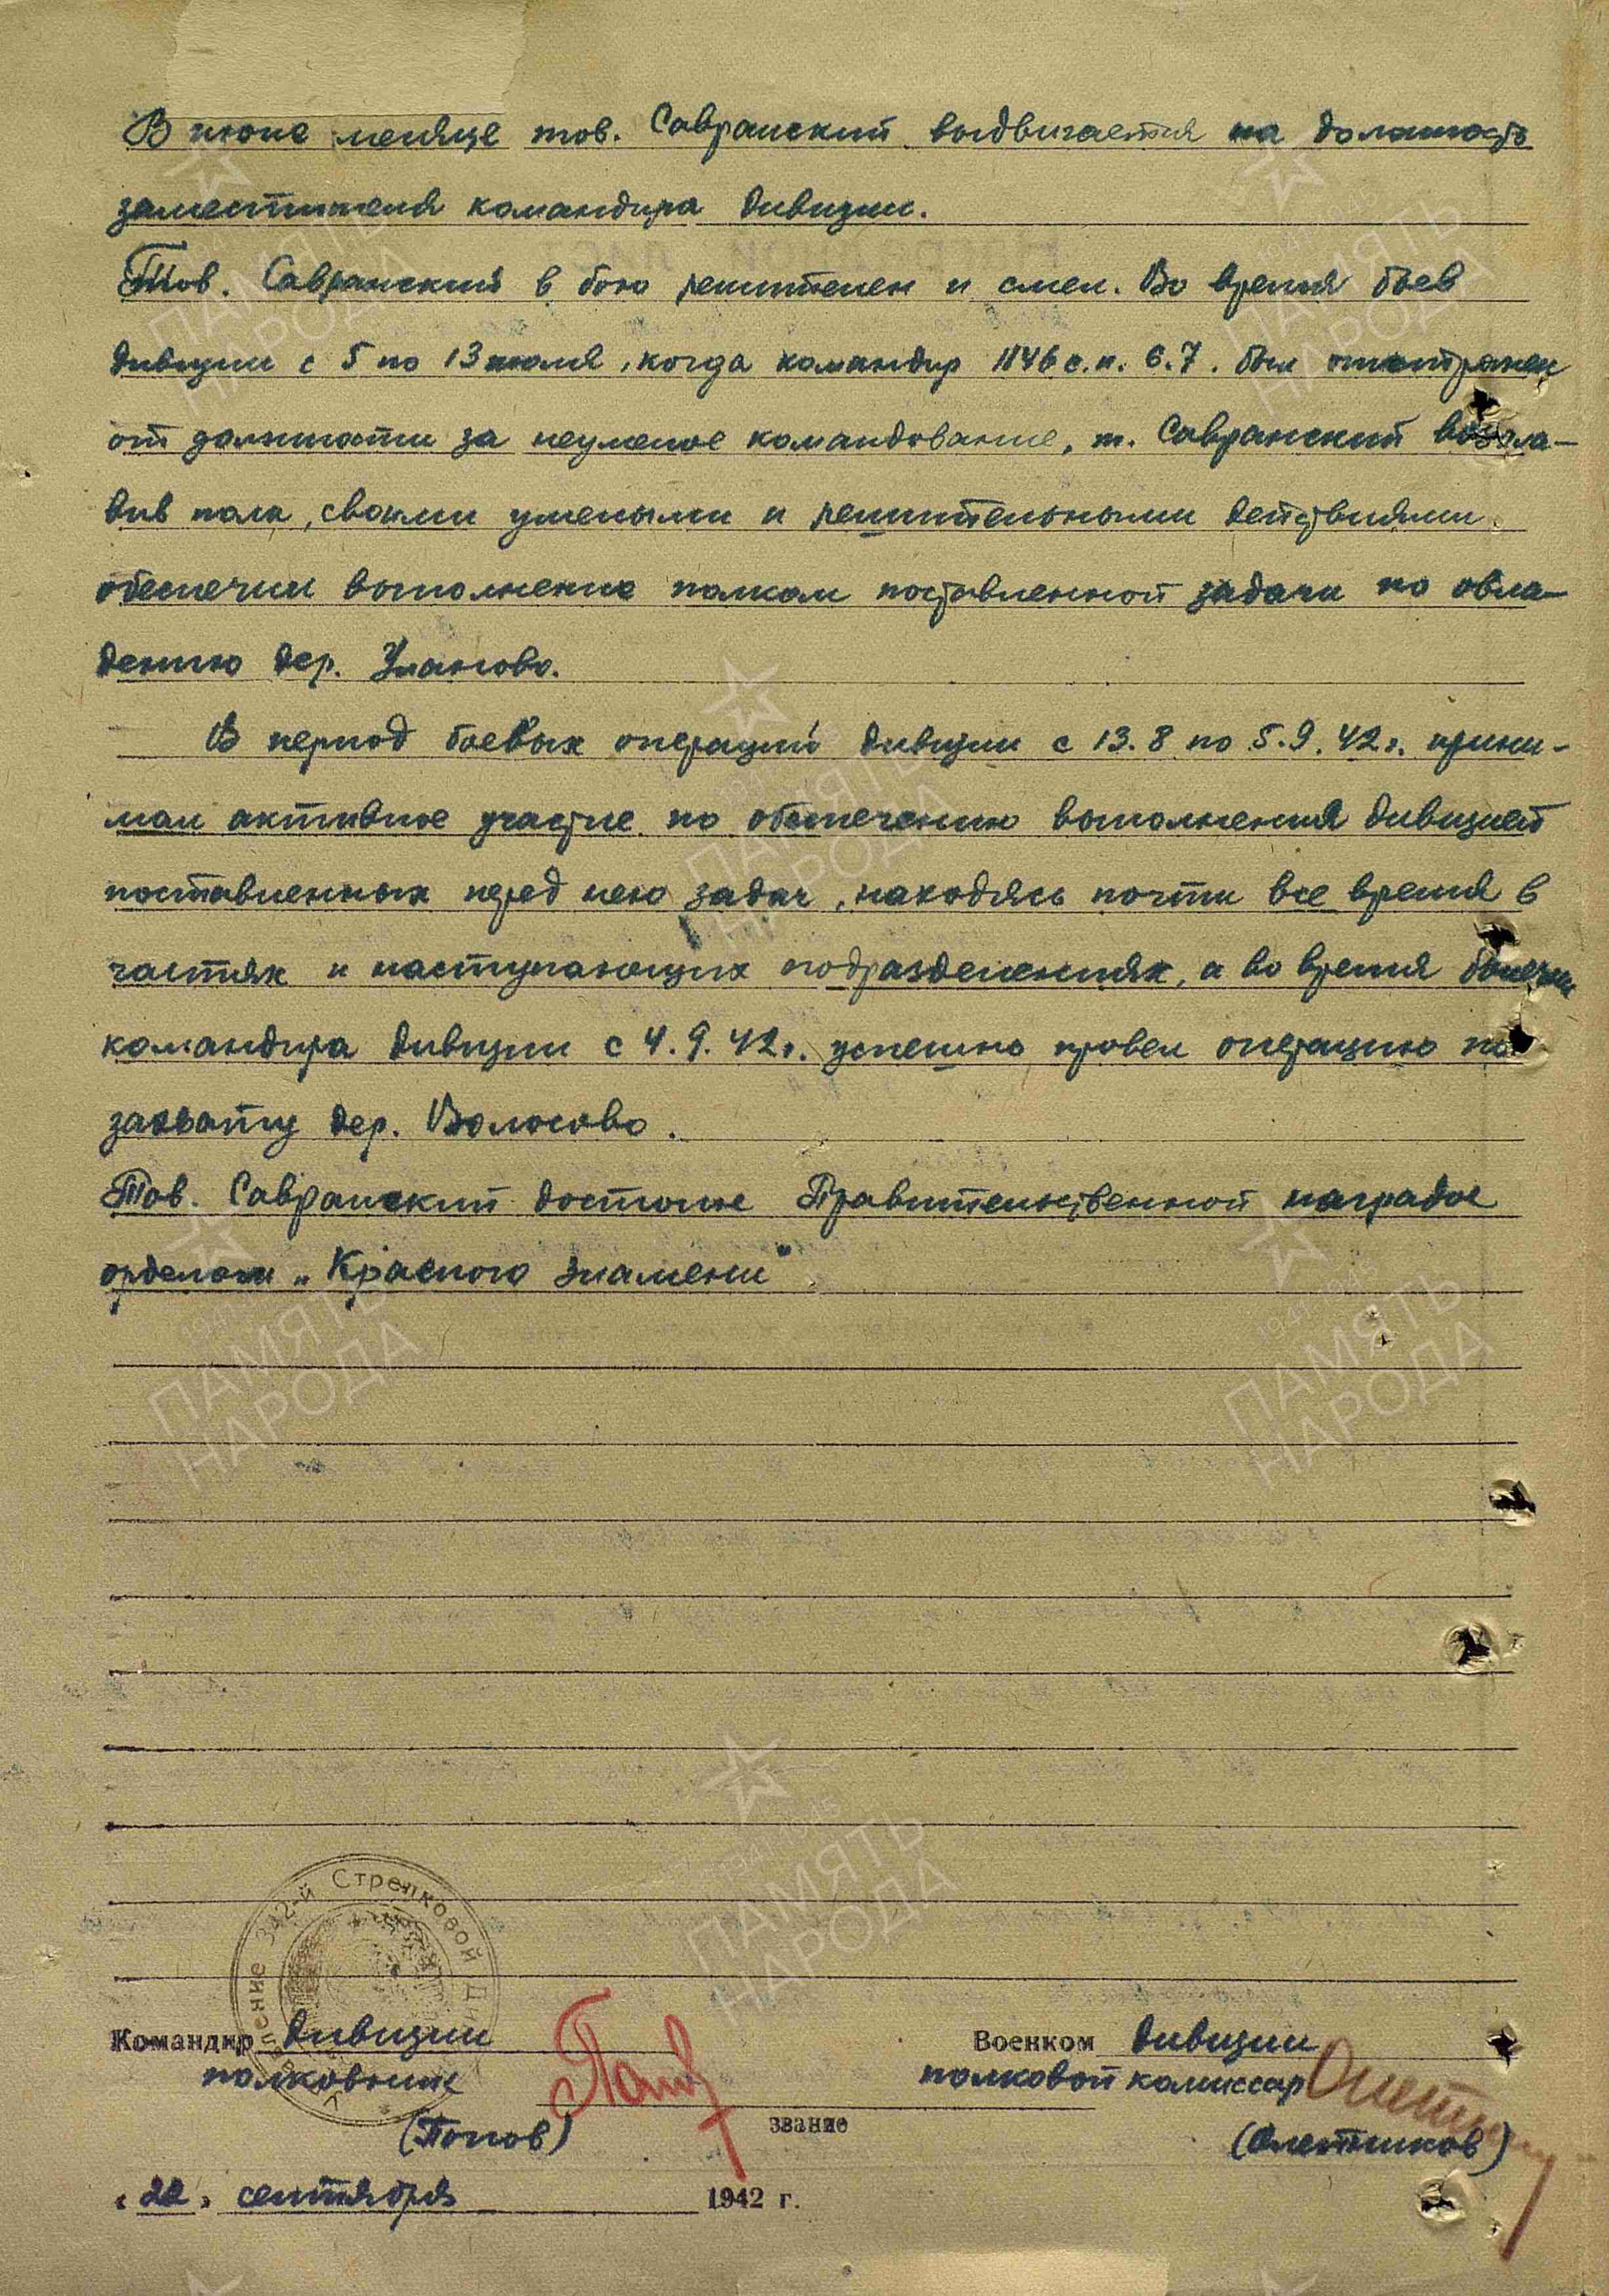 В июне месяце тов. Савранский выдвигается на должность
заместителя командира дивизии.
Тов. Савранский в бою решителен и смел. Во время боев
дивизии с 5 по 13 июля, когда командир 1146 с.п. 6.7. был отстранен
от должности за неумелое командование, т. Савранский возгла-
вив полк, своими умелыми и решительными действиями
обеспечил выполнение полком поставленной задачи по овла-
дению дер. Уланово.
В период боевых операций дивизии с 13.8 по 5.9.42г. прини-
мал активное участие по обеспечению выполнения дивизией
поставленных перед нею задач, находясь почти все время в
частях и наступающих подразделениях, а во время болезни
командира дивизии с 4.9.42г. успешно провел операцию по
захвату дер. Волосово.
Тов. Савранский достоин Правительственной награды
орденом „Красного Знамени"
Управление 342-й Стрелковой Ди
Командир дивизии
полковник
(Попов)
звание
Военком дивизии
полковой комиссар
(Олейников)
"22" сентября 1942 г.
1941-1945
ПАМЯТЬ
НАРОДА